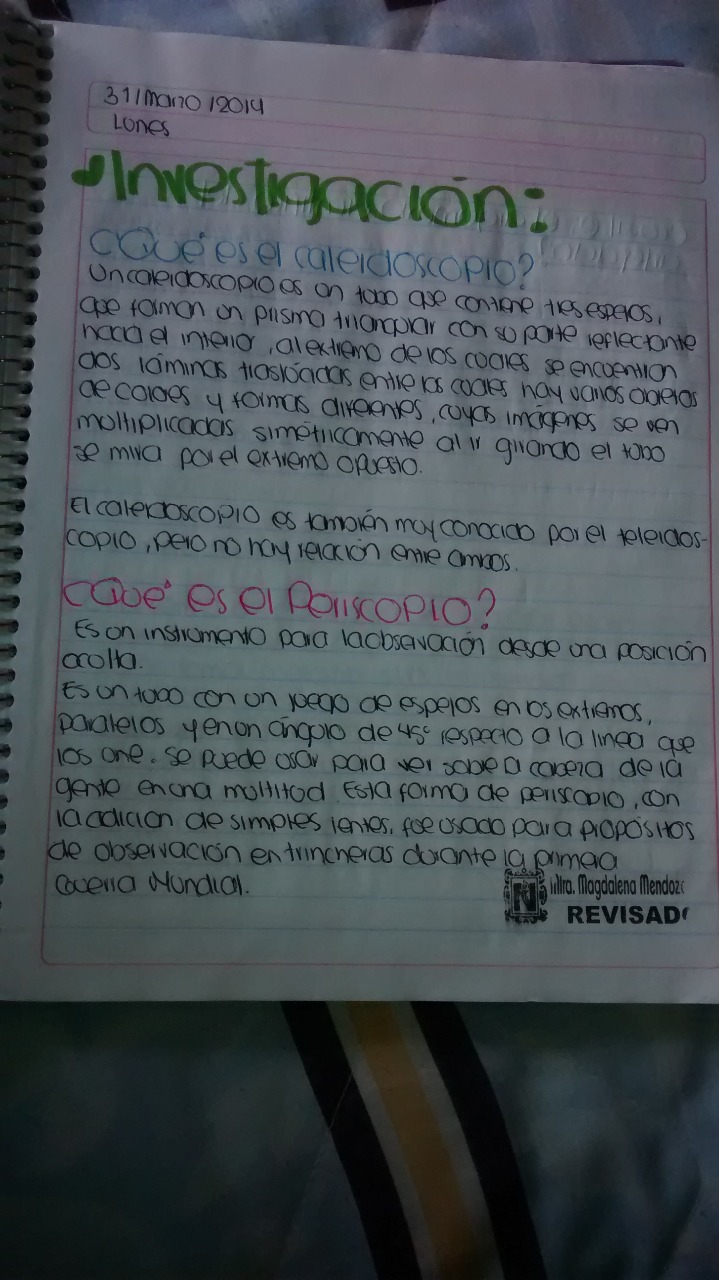 31/Marzo/2014
Lunes
Investigación:
¿Qué es el caleidoscopio?
Un caleidoscopio es un tubo que contiene tres espejos,
que forman un prisma triangular con su parte reflectante
hacia el interior, al extremo de los cuales se encuentran
dos láminas traslúcidas entre las cuales hay varios objetos
de colores y formas diferentes, cuyas imágenes se ven
multiplicadas simétricamente al ir girando el tubo
se mira por el extremo opuesto.
El caleidoscopio es también muy conocido por el teleidos-
copio, pero no hay relación entre ambos.
¿Qué es el Periscopio?
Es un instrumento para la observación desde una posición
oculta.
Es un tubo con un juego de espejos en los extremos,
paralelos y en un ángulo de 45° respecto a la linea que
los une. Se puede usar para ver sobre a cabeza de la
gente en una multitud. Esta forma de periscopio, con
la adición de simples lentes, fue usado para propósitos
de observación en trincheras durante la primera
Guerra Mundial.
Mtra. Magdalena Mendoza
REVISADO